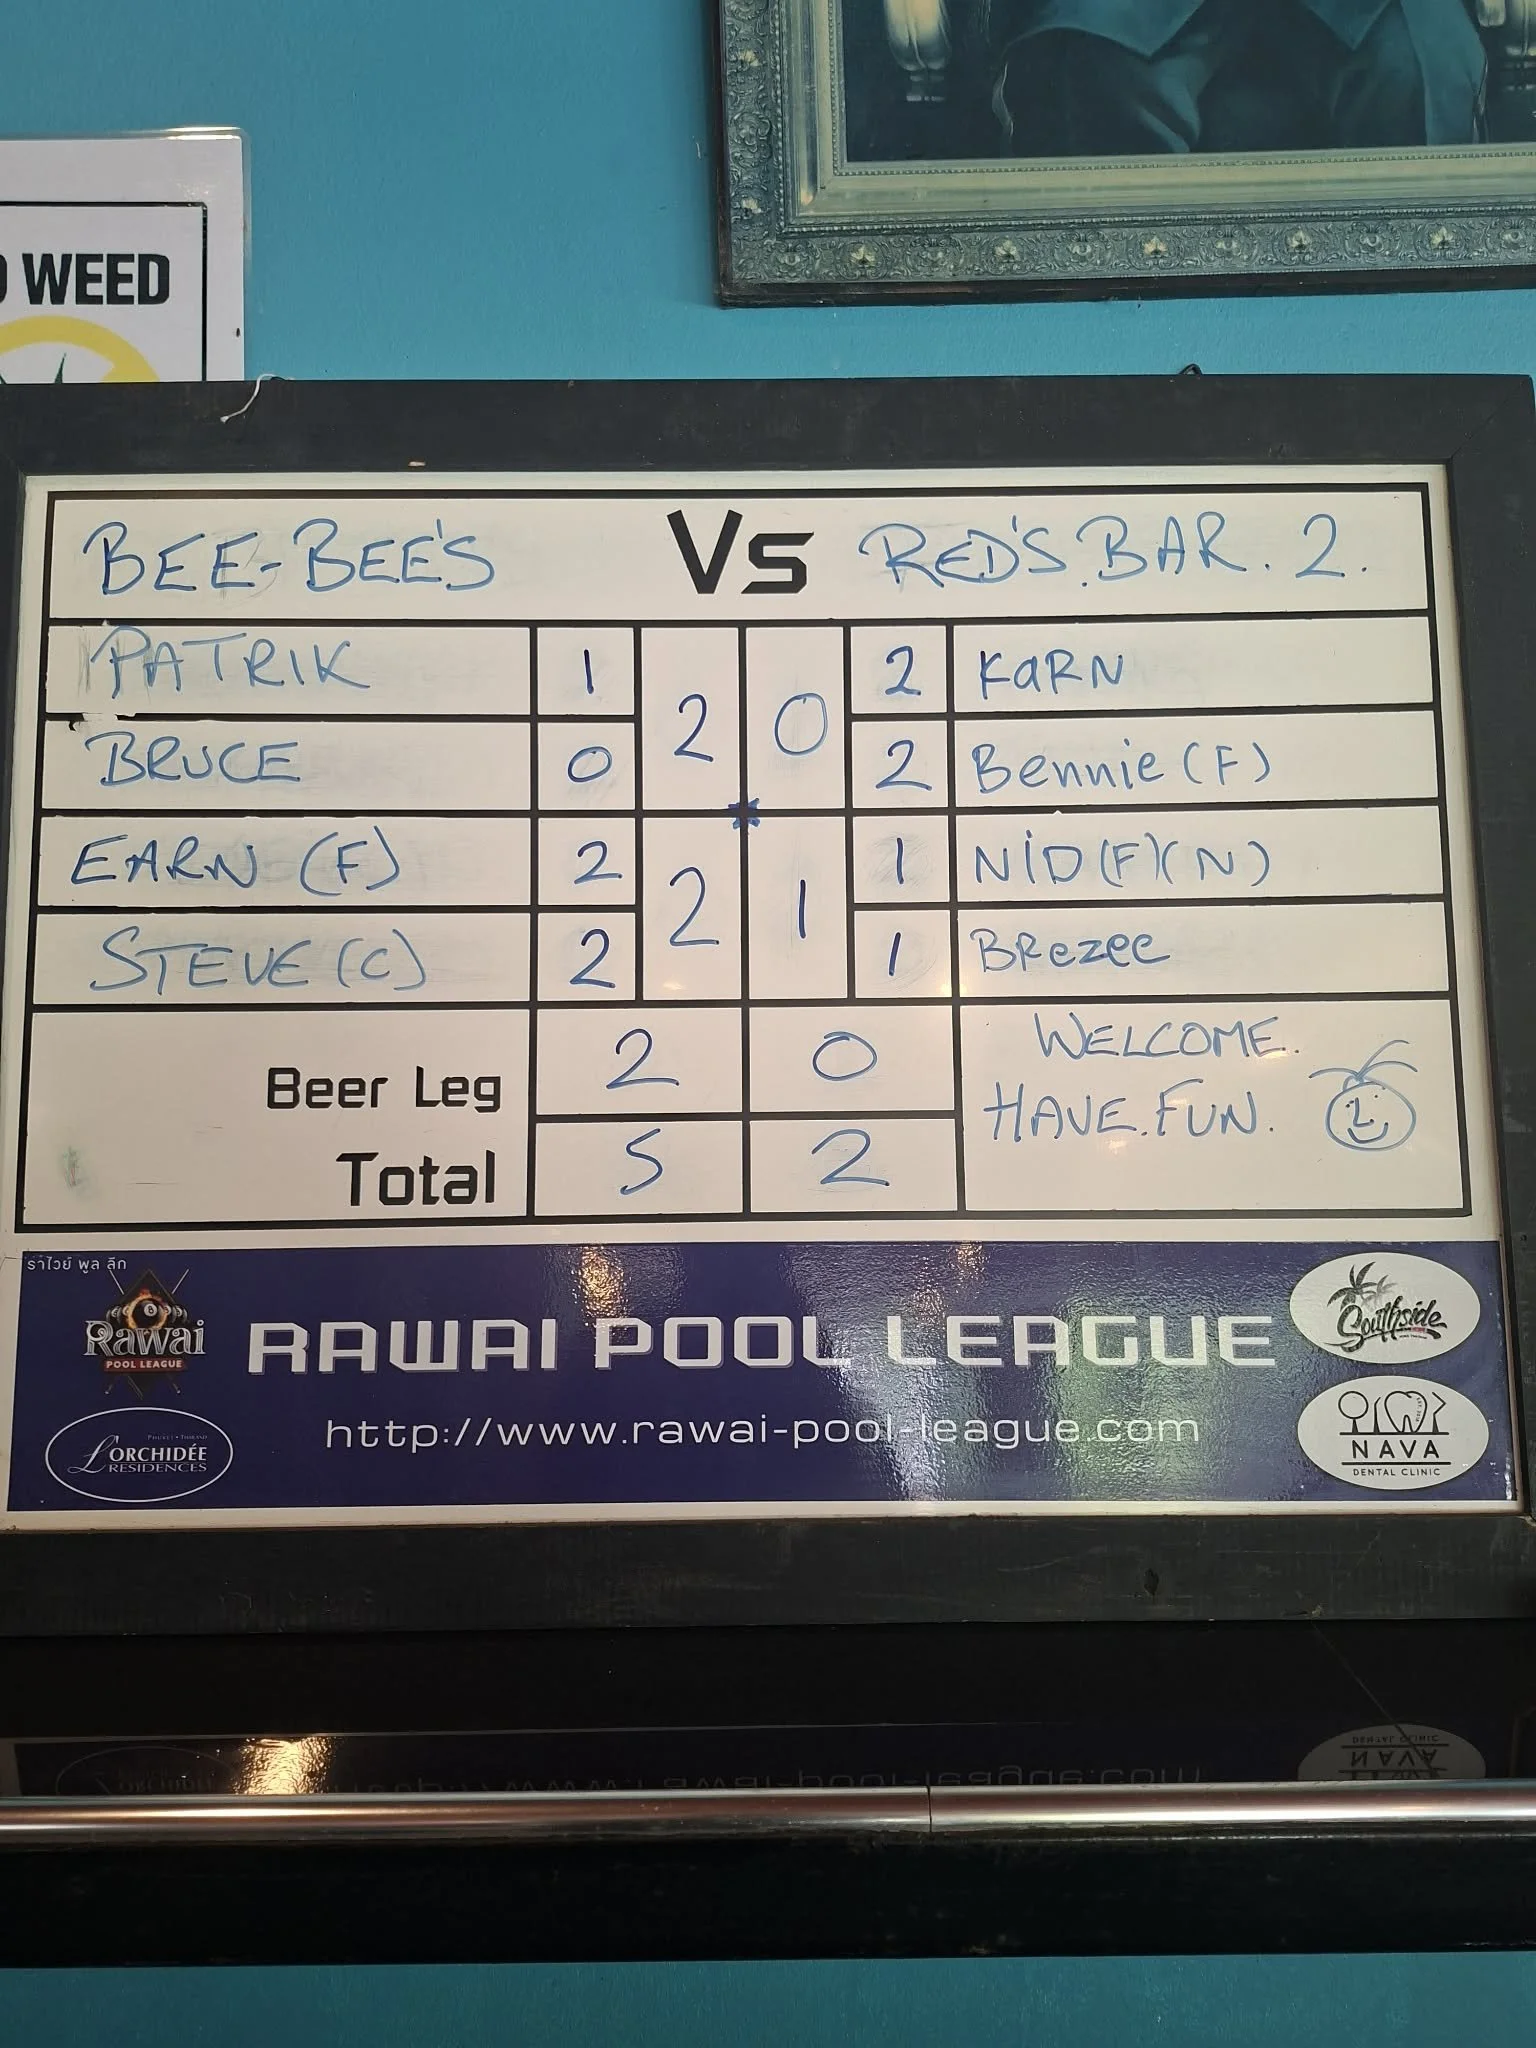 WEED
BEE-BEE'S Vs RED'S.BAR.2.
PATRIK 1 2 KaRN
2 0
BRUCE 0 2 Bennie (F)
EARN (F) 2 1 NiD(F)(N)
2 1
STEVE (C) 2 1 BRezee
Beer Leg 2 0 WELCOME.
HAVE.FUN.
Total 5 2
ราไวย์ พูล ลีก
Rawai
POOL LEAGUE
RAWAI POOL LEAGUE
Southside
http://www.rawai-pool-league.com
PHUKET - THAILAND
L'ORCHIDÉE
RESIDENCES
NAVA
DENTAL CLINIC